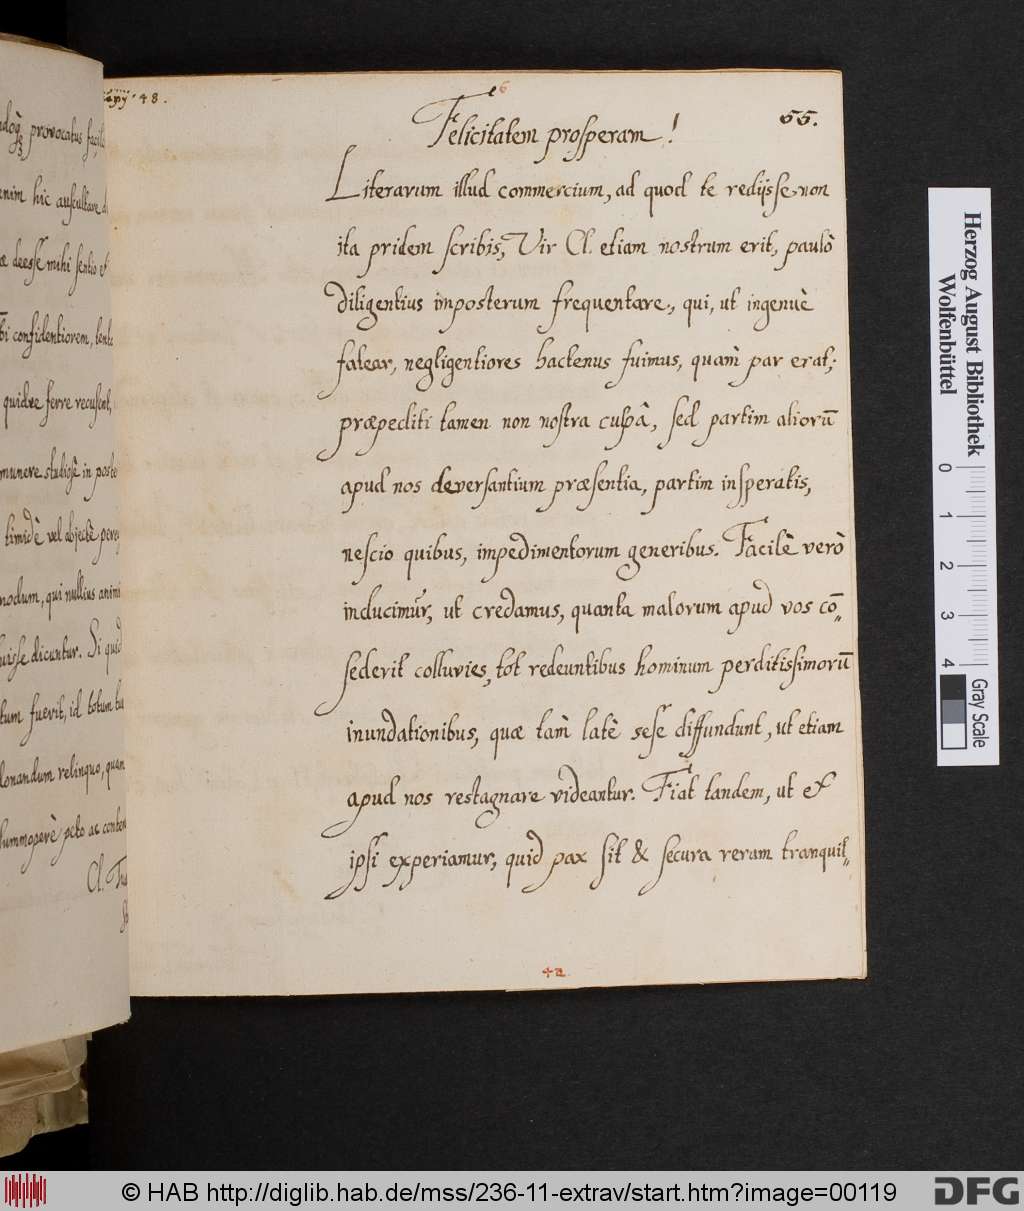 48.
provocatus facile
enim hic auscultare
deesse mihi sentio et
confidentiorem,
quidve ferre recusent,
munere studiosè in poste
timidè vel abjectè
modum, qui nullius animi
uisse dicuntur. Si quid
tum fuerit, id totum tu
donandum relinquo, quam
summoperè peto ac
Cl.
6
66.
Felicitatem prosperam!
Literarum illud commercium, ad quod te redijsse non
ita pridem scribis, Vir Cl. etiam nostrum erit, paulò
diligentius imposterum frequentare, qui, ut ingenuè
fatear, negligentiores hactenus fuimus, quam̀ par erat;
præpediti tamen non nostra culpâ, sed partim aliorū
apud nos deversantium præsentia, partim insperatis,
nescio quibus, impedimentorum generibus. Facilè verò
inducimur, ut credamus, quanta malorum apud vos cō„
sederit colluvies, tot redeuntibus hominum perditissimorū
inundationibus, quæ tam̀ latè sese diffundunt, ut etiam
apud nos restagnare videantur. Fiat tandem, ut et
ipsi experiamur, quid pax sit & secura rerum tranquil„
42
Herzog August Bibliothek
Wolfenbüttel
0 1 2 3 4
Gray Scale
© HAB http://diglib.hab.de/mss/236-11-extrav/start.htm?image=00119
DFG